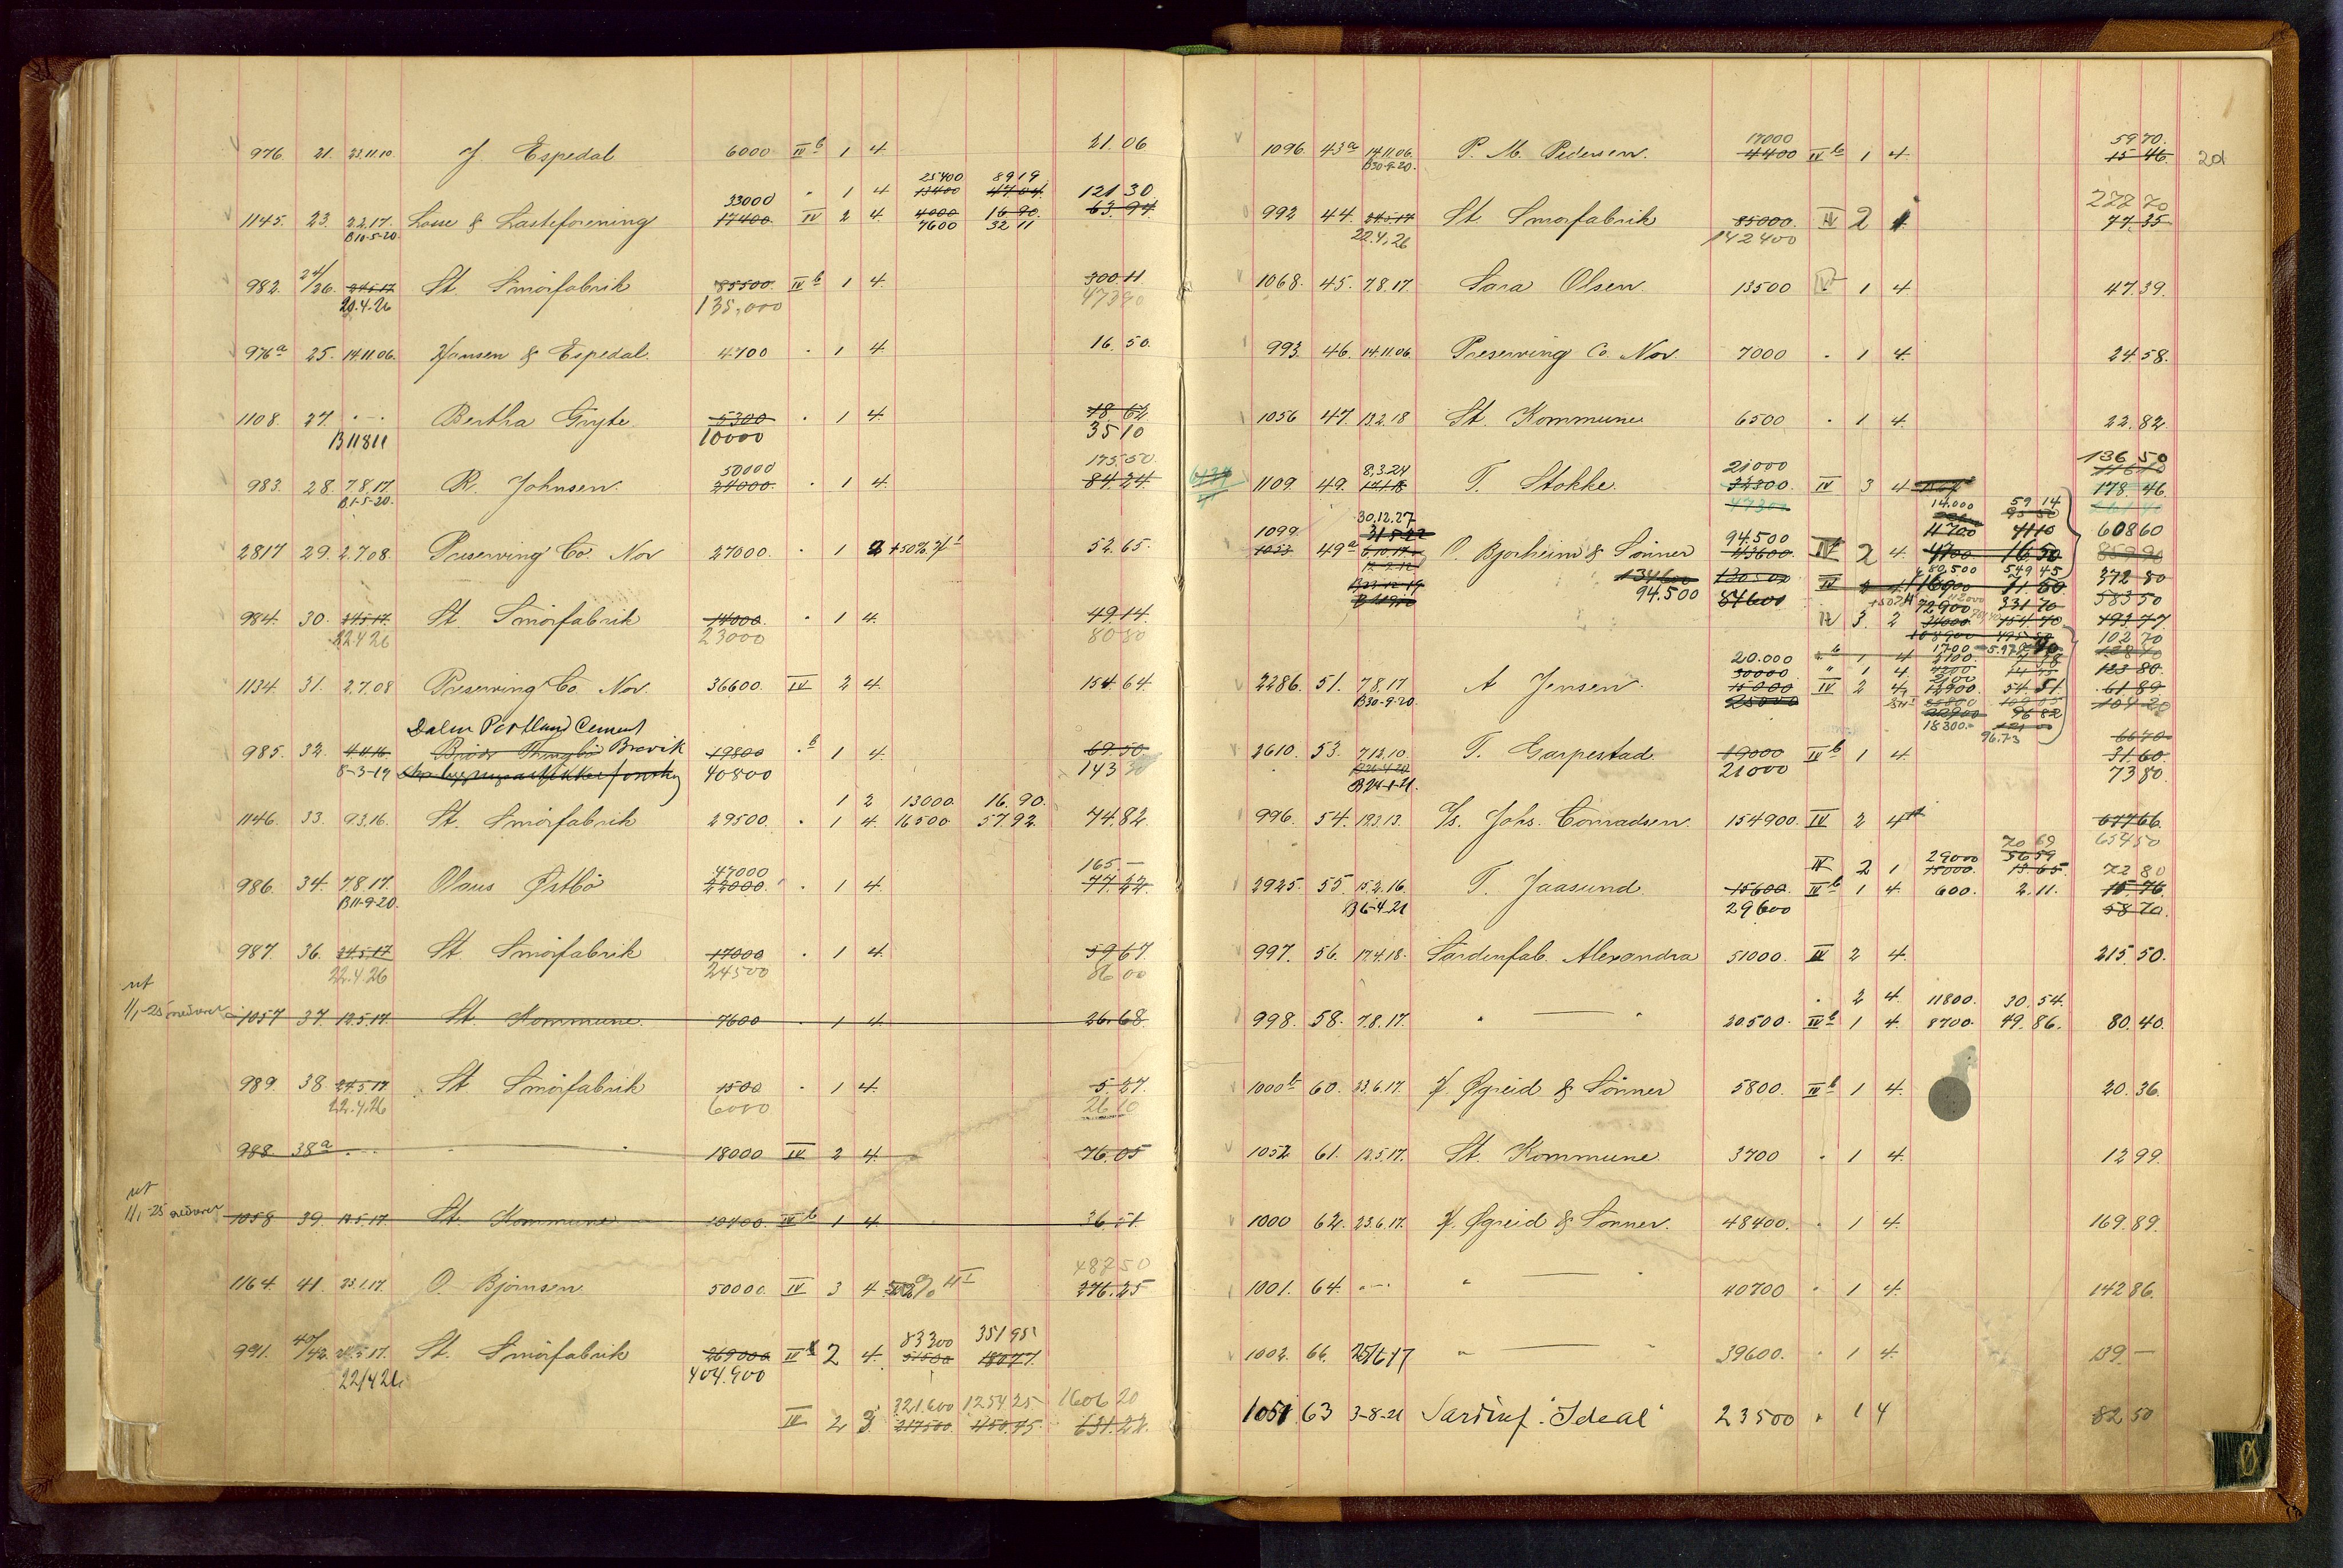 976. 21. 23.11.10. J. Espedal 6000 IV b 1 4 21.06
33000 " 1 4 25400 13400 8919 47.04 121 30
1145. 23. 2.2.17. Losse & Lasteforening 17400 IV 2 4. 4000 16 90. 63.94
B10-5-20 7600 32 11
982. 24/26. 24.5.17 St. Smörfabrik 85500 IV b 1 4. 300.11
20.4.26 135,000 473 80
976 a 25. 14.11.06. Hansen & Espedal. 4700 " 1 4 16.50.
1108. 27. " Bertha Gryte 5300 " 1 4. 18 62
B11811 10000 35 10
50000 175.50.
983. 28. 7.8.17. R. Johnsen. 24000. " 1 4. 84.24.
B.1-5-20.
2817 29. 2.7.08. Preserving Co. Nor 27000. " 1 2 +50% 52.65.
984. 30. 24.5.17 St. Smörfabrik 14000. " 1 4. 49.14.
22.4.26 23000 80 80
1134. 31. 2.7.08 Preserving Co Nor. 36600. IV 2 4. 154.64.
Dalen Portland Cement
985. 32. 4.4.16 Brevik 19800 " b 1 4. 69.50
8-3-19 40800 143 30
1 2 13000. 16.90.
1146. 33. 9.3.16. St. Smörfabrik 29500. " 1 4. 16500. 57.92. 74.82.
47000 165.—
986. 34. 7.8.17. Olaus Østbö 22000. " 1 4. 77.22
B11-9-20.
987. 36. 24.5.17 St. Smörfabrik 17000 " 1 4. 59 67.
22.4.26 24500 86 00
ut
1/1-25 nedrevet 1057 37. 12.5.17. St. Kommune. 7600 " 1 4. 26.68
989. 38. 24.5.17 St. Smörfabrik 1500 " 1 4. 5.27.
22.4.26 6000 26 10
988. 38 a " " — " 18000 IV 2 4. 76.05
ut
1/1-25 nedrevet 1058 39. 12.5.17. St. Kommune 10400 IV b 1 4. 36.51.
487 50
1164. 41. 23.1.17. O. Bjørnsen 50000. IV 3 4. 276.25
83300 351 95
991. 40/42. 24.5.17. St. Smörfabrik 269000 IV 2 4. 51500 180 77
22/4 26 404.900
321.600 1254 25 1606 20
IV 2 3. 217500 450.45 631.22.
17000 59 70.
1096. 43 a 14.11.06. P. M. Pedersen. 4400 IV b 1 4. 15 46.
B30-9-20.
272 70
992 44. 24.5.17 St. Smörfabrik 85000. IV 2 1 77.35
22.4.26 142400
1068. 45. 7.8.17. Sara Olsen. 13500 IV 1 4. 47.39.
993. 46. 14.11.06. Preserving Co. Nor. 7000 " 1 4. 24.58.
1056 47. 13.2.18 St. Kommune 6500 " 1 4. 22.82.
8.3.24 21000 136 50
1109 49. T. Stokke. 33300. IV 3 4 178 46
30.12.27 14.000 59 14
1099 31.5.22 94.500 11700 41 10 608 60
1033 49 a 6.10.17 O. Bjorheim & Sönner 43600. IV 2 4. 4700. 16 50
80,500 549 45 372 80
134600 130500 IV 2 4 583 50
94.500 87600 72900 331 70
IV 3. 2 34000 154 70 193.77.
108900 102 70
20.000 " b 1 4 1700
30000 " 1 4. 123 80.
2286. 51. 7.8.17 A Jensen. 15000 IV 2 4. 12900. 54.51. 61 89.
B30-9-20. 25000 22900 96 82
18300.— 96.73
66 70
2610. 53. 7.12.10. T. Garpestad. 19000 IV b 1 4. 31.60.
B24-1-21. 21000 73 80.
996. 54. 12.3.13. I/s. Johs. Conradsen. 154900. IV 2 4 677 66.
654 50
70 69
IV 2 1 29000 15000. 56 59 13.65. 72 80
2925. 55. 15.2.16. T. Jaasund 15600. IV b 1 4. 600. 2.11. 15.76.
B6-4-21 29600 58 70.
997. 56. 17.4.18. Sardinfab. Alexandra 51000. IV 2 4. 215.50.
" 2 4. 11800. 30.54.
998. 58. 7.8.17. " — " 20500. IV b 1 4. 8700. 49.86. 80.40.
1000 b 60. 23.6.17. F. Øgreid & Sönner 5800. IV b 1 4. 20.36.
1052 61. 12.5.17. St. Kommune 3700 " 1 4. 12 99.
1000 62. 23.6.17. F. Øgreid & Sönner. 48400. " 1 4. 169.89.
1001. 64. " " — 40700 " 1 4. 142 86.
1002. 66. 25/6 17 " — " 39600. " 1 4. 139.—
1051. 63 3-8-21 Sardinf. "Ideal" 23500 " 1 4 82 50
201
Ø